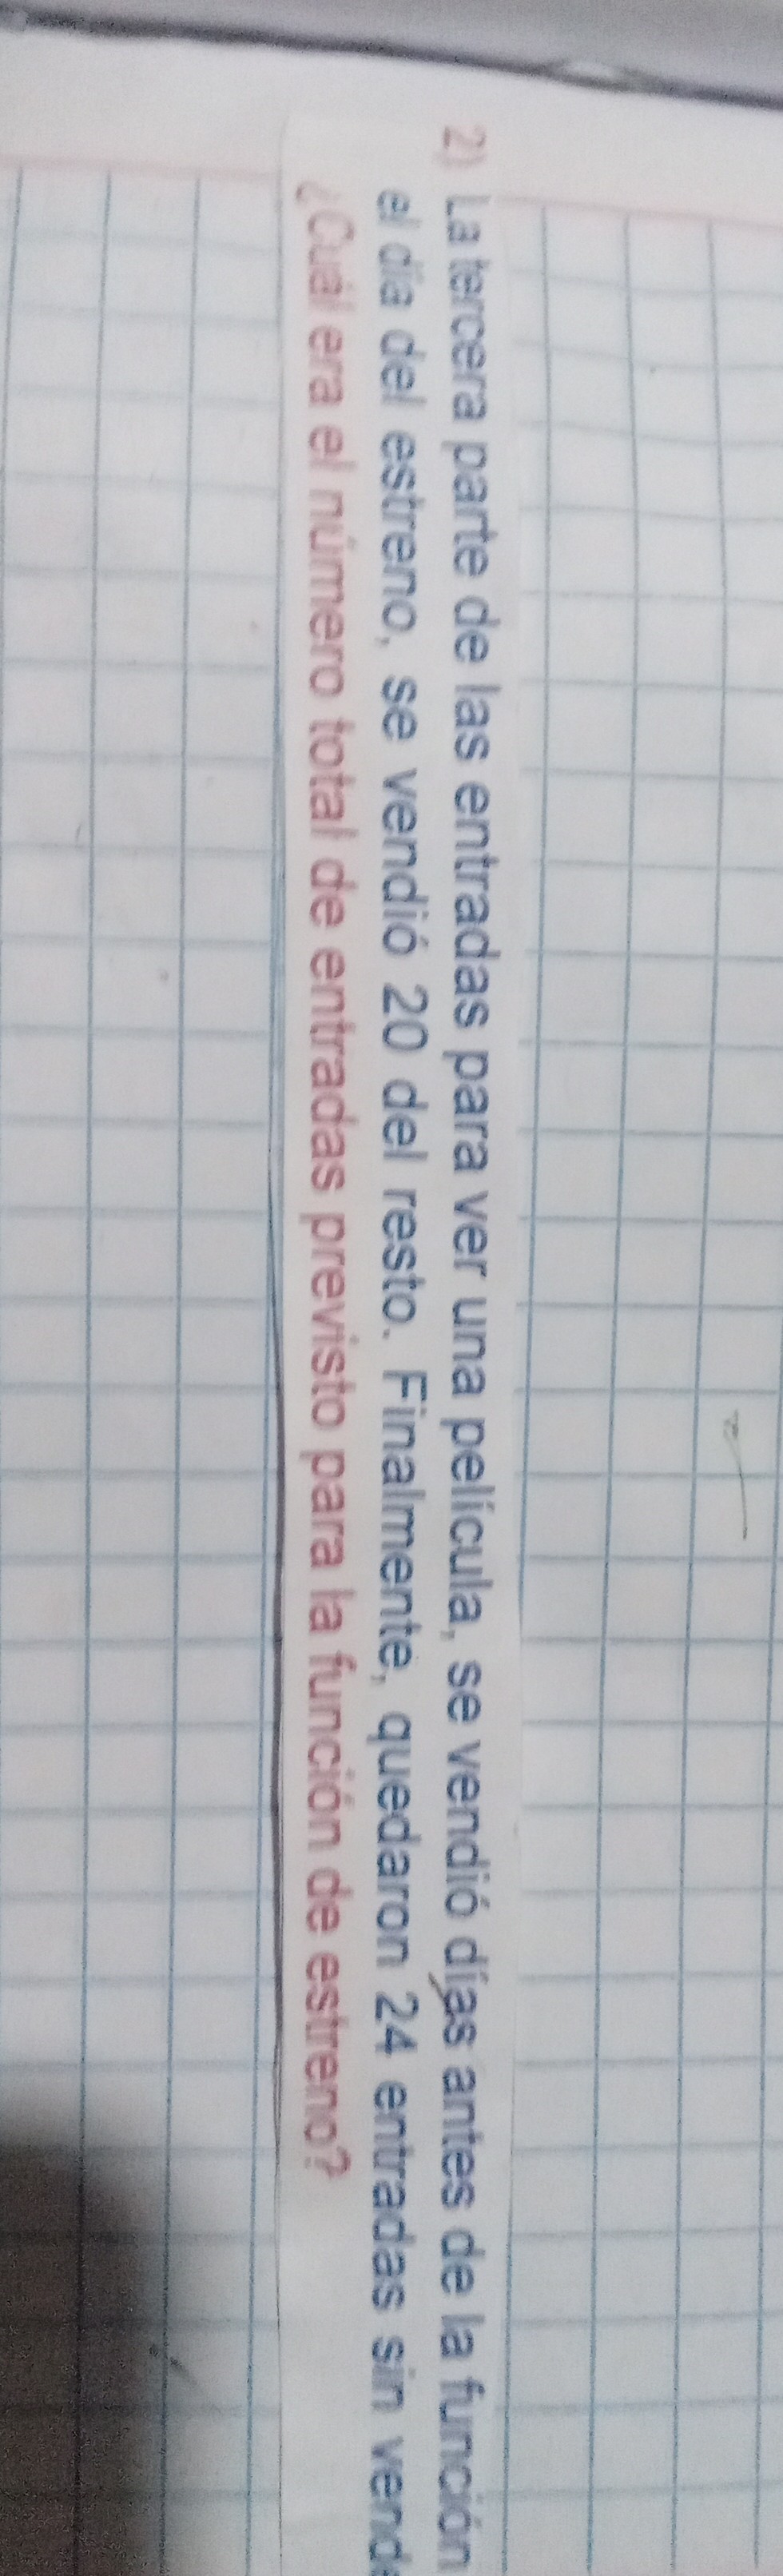 2) La tercera parte de las entradas para ver una película, se vendió días antes de la función
el día del estreno, se vendió 20 del resto. Finalmente, quedaron 24 entradas sin vend
¿Cuál era el número total de entradas previsto para la función de estreno?